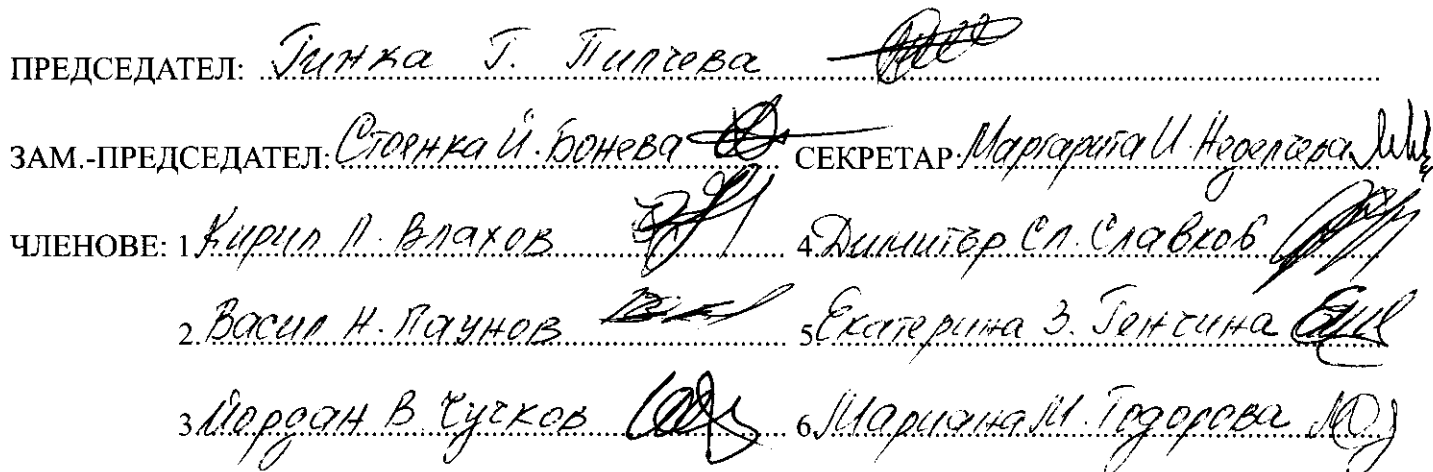 ПРЕДСЕДАТЕЛ: Гинка Г. Пипчева
ЗАМ.-ПРЕДСЕДАТЕЛ: Стоянка Й. Бонева СЕКРЕТАР: Маргарита И. Неделчева
ЧЛЕНОВЕ: 1 Кирил П. Влахов 4 Димитър Сл. Славков
2 Васил Н. Паунов 5 Екатерина З. Генчина
3 Йордан В. Чучков 6 Мариана М. Тодорова